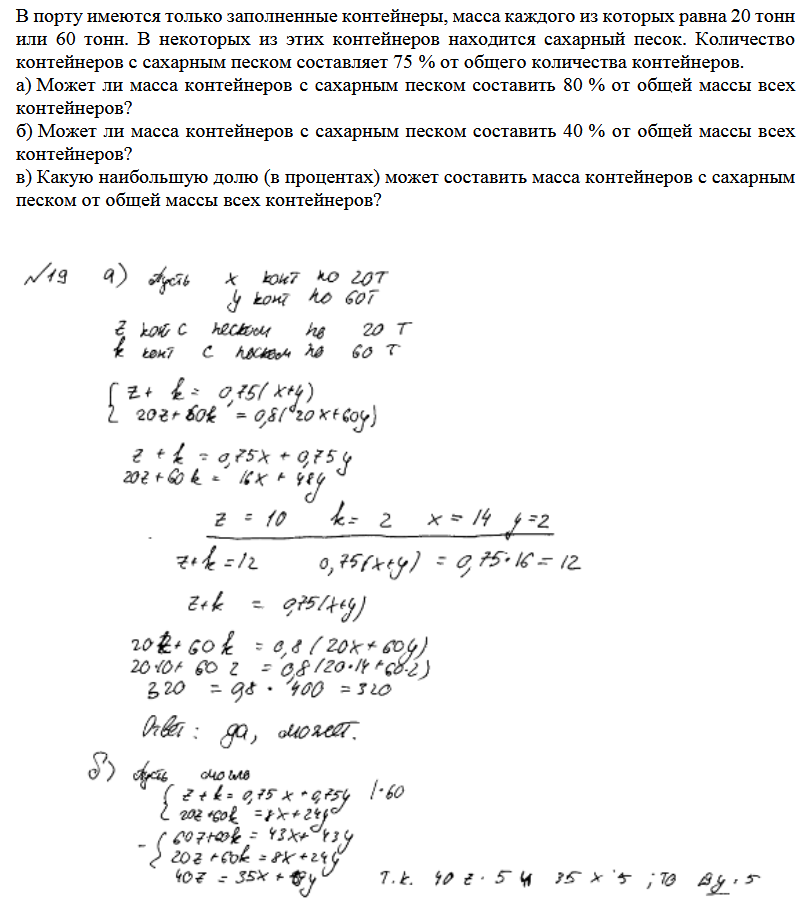 В порту имеются только заполненные контейнеры, масса каждого из которых равна 20 тонн
или 60 тонн. В некоторых из этих контейнеров находится сахарный песок. Количество
контейнеров с сахарным песком составляет 75 % от общего количества контейнеров.
а) Может ли масса контейнеров с сахарным песком составить 80 % от общей массы всех
контейнеров?
б) Может ли масса контейнеров с сахарным песком составить 40 % от общей массы всех
контейнеров?
в) Какую наибольшую долю (в процентах) может составить масса контейнеров с сахарным
песком от общей массы всех контейнеров?
№19 а) Пусть x конт по 20т
y конт по 60т
z кон с песком по 20 т
k конт с песком по 60 т
z + k = 0,75(x+y)
20z+60k = 0,8(20x+60y)
z + k = 0,75x + 0,75y
20z+60k = 16x + 48y
z = 10 k = 2 x = 14 y = 2
z+k=12 0,75(x+y) = 0,75·16 = 12
z+k = 0,75(x+y)
20z+60k = 0,8(20x+60y)
20·10+ 60 2 = 0,8(20·14+60·2)
320 = 0,8 · 400 = 320
Ответ: да, может.
б) Пусть могло
z + k = 0,75x + 0,75y |·60
20z+60k = 8x+24y
- 60z+60k = 43x+ 43y
20z+60k = 8x+24y
40z = 35x + y т.к. 40 z 5 и 35 x 5 ; то y 5